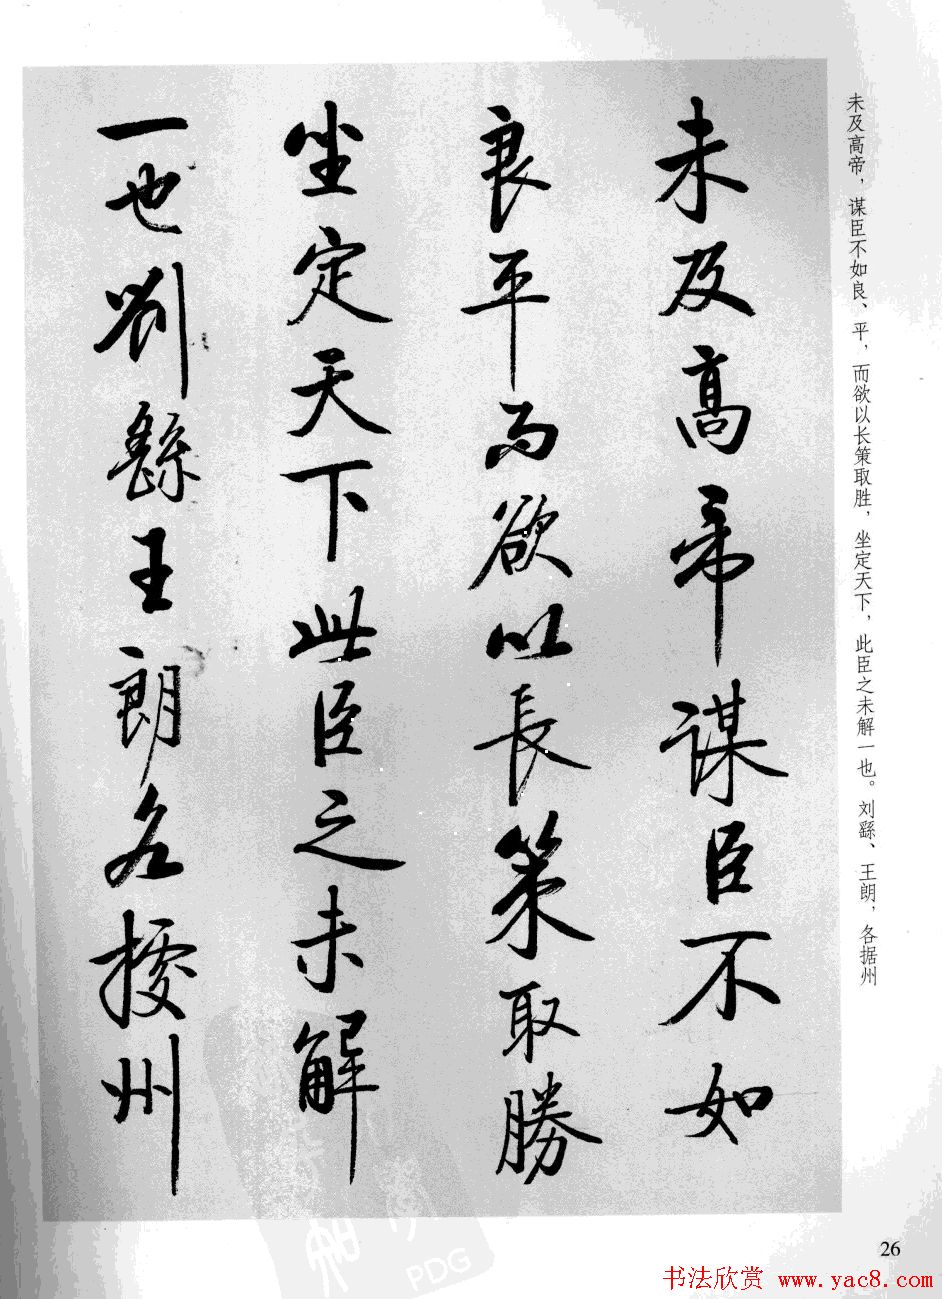 未及高帝，谋臣不如良、平，而欲以长策取胜，坐定天下，此臣之未解一也。刘繇、王朗，各据州
未及高帝謀臣不如
良平而欲以長策取勝
坐定天下此臣之未解
一也劉繇王朗各據州
26
书法欣赏 www.yac8.com
PDG